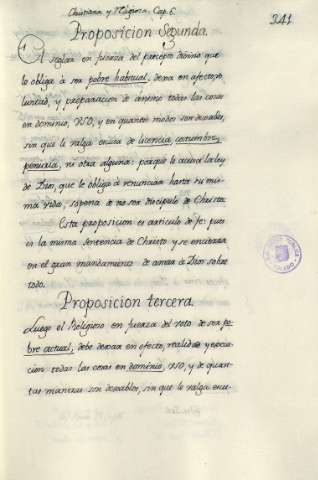 Christiana y Religiosa. Cap. 6.
341
Proposicion Segunda.
A seglar en fuerza del precepto divino que
lo obliga à ser pobre habitual, dexa en afecto, vo
luntad, y preparacion de animo todas las cosas
en dominio, uso, y en quantos modos son dexables,
sin que le valga excusa de licencia, costumbre,
penuria, ni otra alguna: porque lo acusa la ley
de Dios, que le obliga à renunciar hasta su mis
ma vida, sopena de no ser discipulo de Christo.
Esta proposicion es articulo de fe: pues
es la misma sentencia de Christo y se encierra
en el gran mandamiento de amar à Dios sobre
todo.
Proposicion tercera.
Luego el Religioso en fuerza del voto de ser po
bre actual, debe dexar en efecto, realidad y execu
cion todas las cosas en dominio, uso, y de quan
tas maneras son dexables, sin que le valga excu-